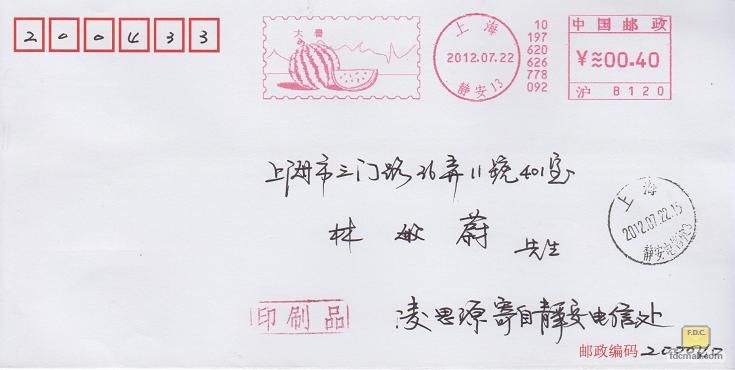 200433
大暑
上海
2012.07.22
静安13
10
197
620
626
778
092
中国邮政
¥≈00.40
沪 B120
上海市三门路36弄11号401室
林敏蔚 先生
上海
2012.07.22.15
印刷品
凌思源寄自静安电信处
邮政编码 200040
F.D.C.
fdcmall.com